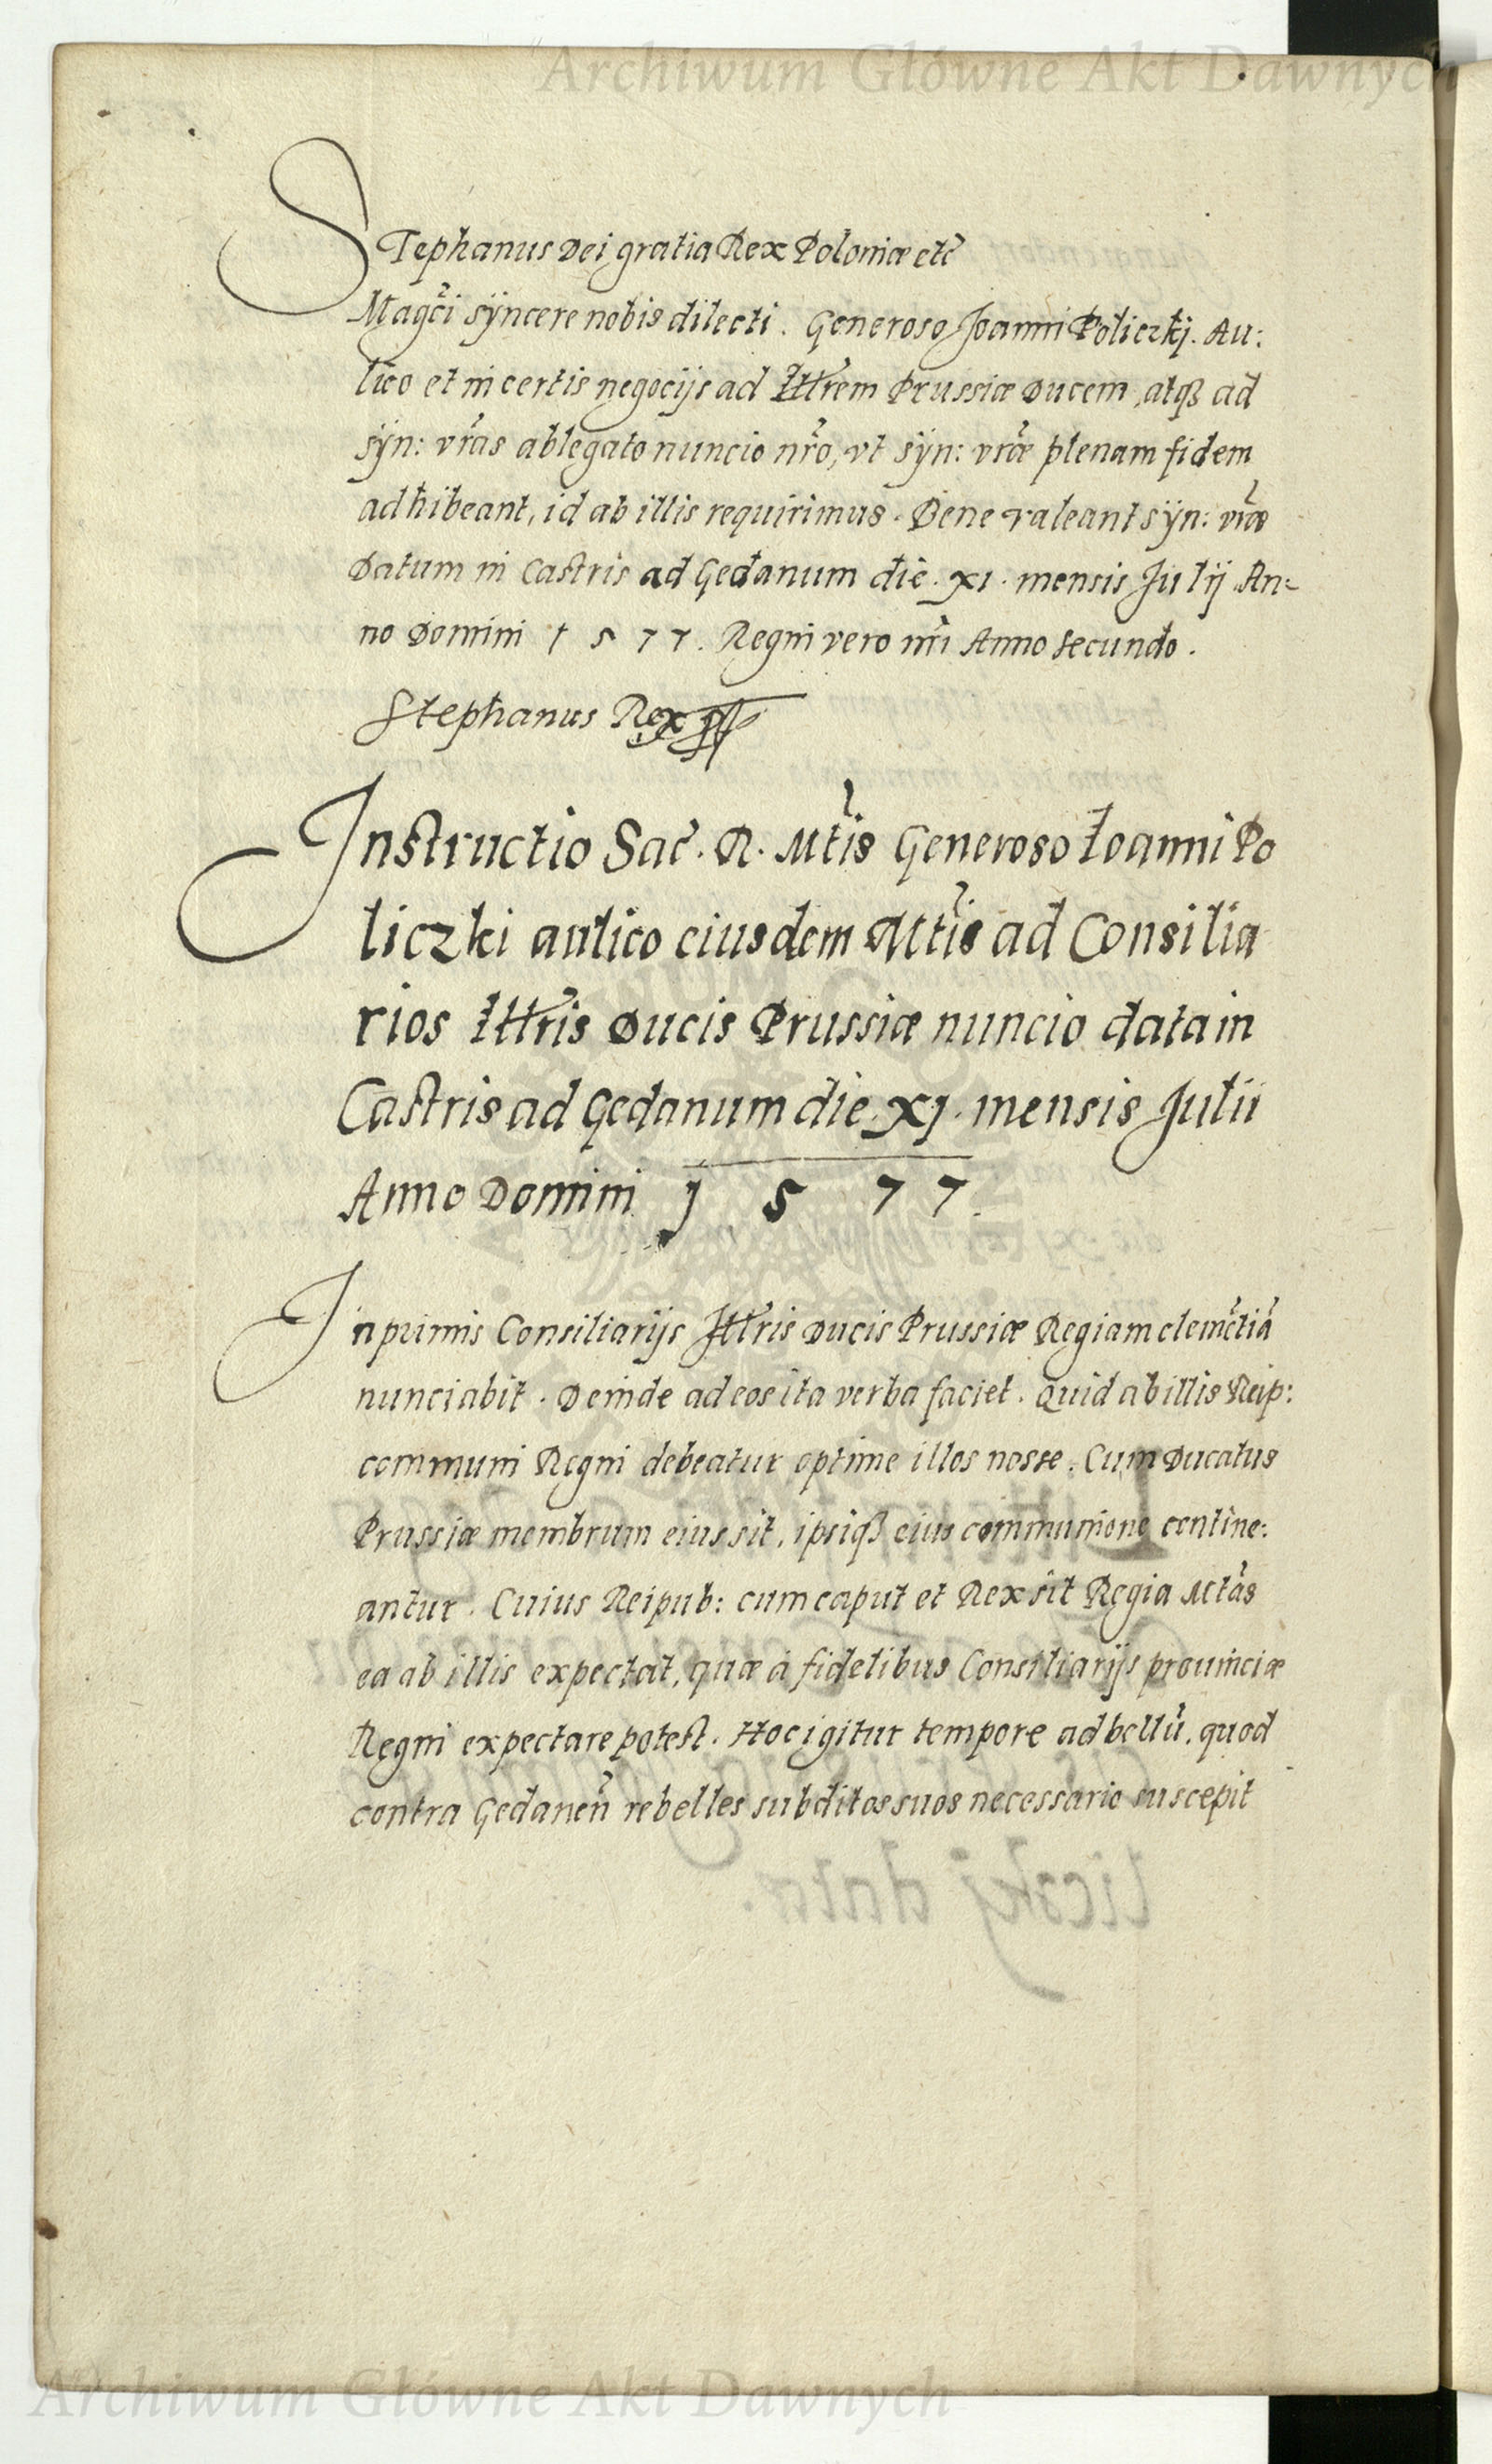 Archiwum Główne Akt Dawnych
STephanus Dei gratia Rex Poloniæ etc̃
Magc̃i sÿncere nobis dilecti. Generoso Joanni Policzkj. Au:
lico et in certis negocijs ad Illr̃em Prussiæ Ducem, atqȝ ad
sÿn: vr̃as ablegato nuncio nr̃o, vt sÿn: vr̃æ plenam fidem
adhibeant, id ab illis requirimus. Bene valeant sÿn: vr̃æ
Datum in Castris ad Gedanum die. XI. mensis Julij An-
no Domini 1577. Regni vero nr̃i Anno secundo.
Stephanus Rex
Instructio Sac̃. R. Mt̃is Generoso Ioanni Po
liczki aulico eiusdem Mt̃is ad Consilia
rios Illr̃is Ducis Prussiæ nuncio data in
Castris ad Gedanum die. XJ. mensis Julii
Anno Domini 1577.
Inprimis Consiliarijs Illr̃is Ducis Prussiæ Regiam clemẽtiã
nunciabit. Deinde ad eos ita verba faciet. Quid ab illis Reip:
communi Regni debeatur optime illos nosse. Cum Ducatus
Prussiæ membrum eius sit, ipsiqȝ eius communione contine:
antur. Cuius Reipub: cum caput et Rex sit Regia Mt̃as
ea ab illis expectat, quæ à fidelibus Consiliarijs prouinciæ
Regni expectare potest. Hoc igitur tempore ad bellũ, quod
contra Gedaneñ rebelles subditos suos necessario suscepit
Archiwum Główne Akt Dawnych